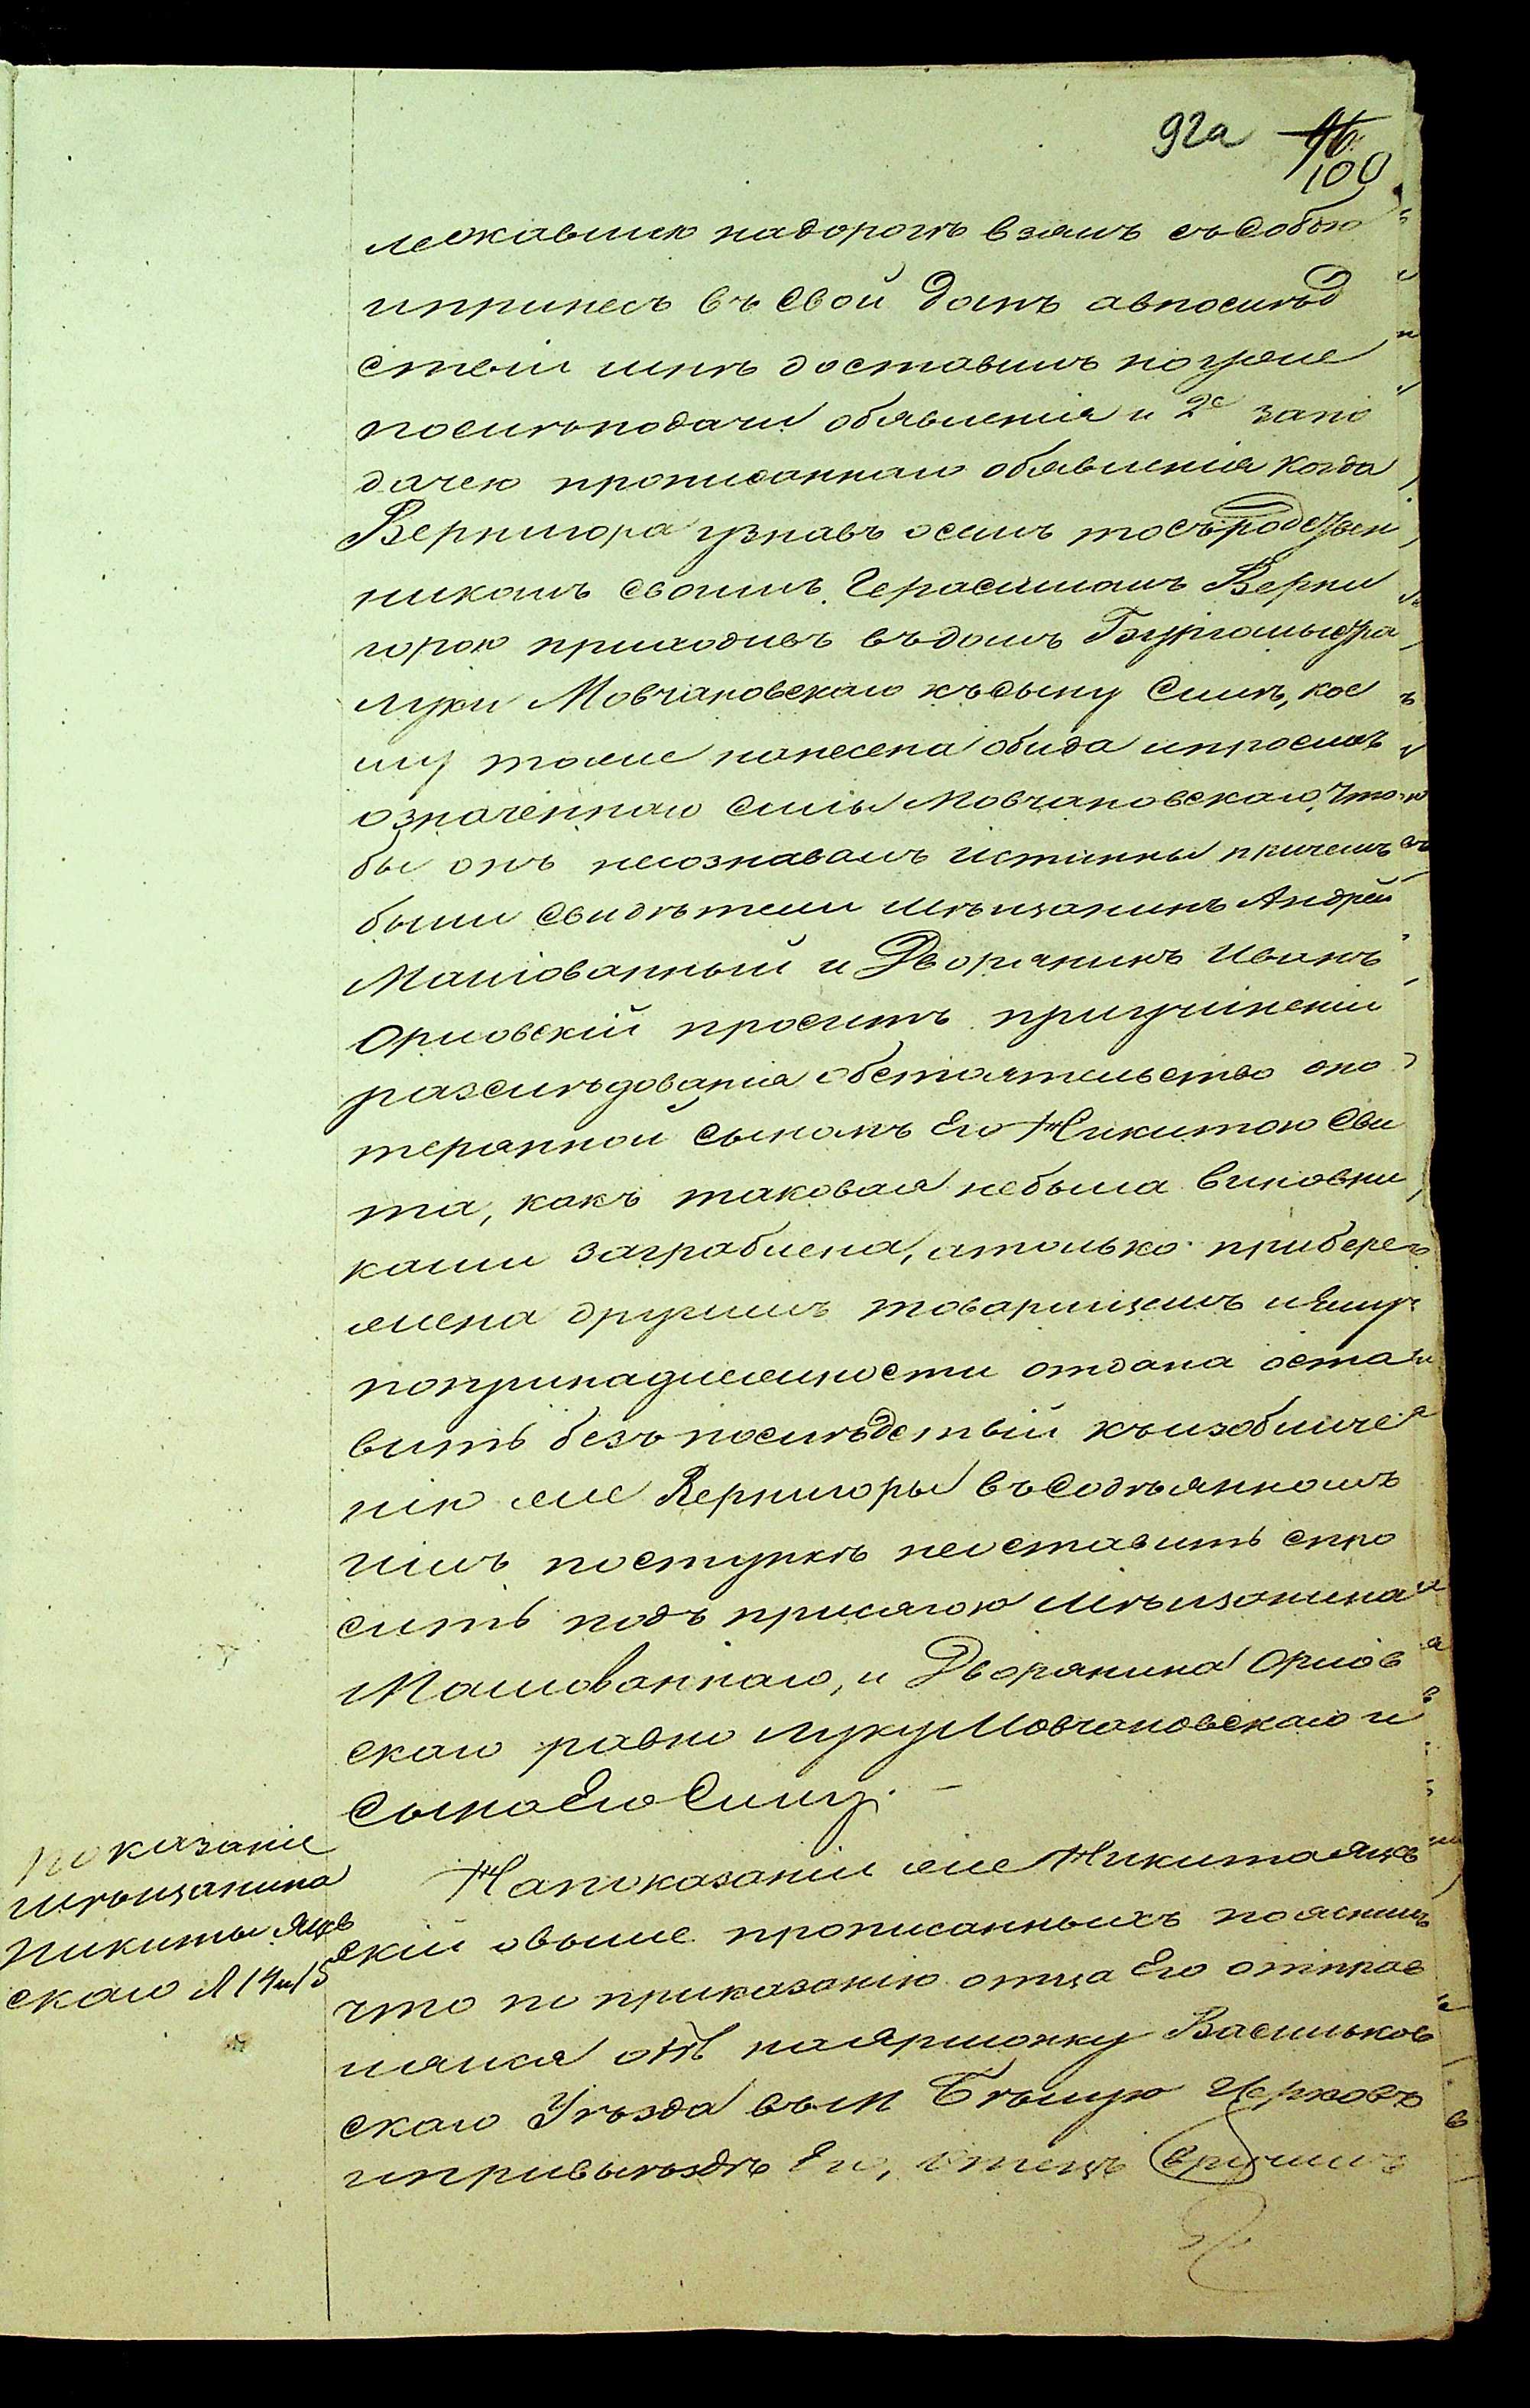 92а 96
100
лежавшею надорогѣ взялъ съ собою
ипринесъ въ свой домъ авпослѣд
ствіи имъ доставилъ ночуже
послѣподачи обявленія и 2е запо
дачею прописаннаго обявленія когда
Вернигора узнавъ осемъ тосъродствен
никомъ своимъ Герасимомъ Верни
горою приходивъ въдомъ Бургомыстра
Луки Мовчановскаго късыну Силѣ, кое
му также нанесена обида ипросилъ
означеннаго Силы Мовчановскаго, что
бы онъ несознавалъ истинны причемъ
были свидѣтели мѣщанинъ Андрей
Малюванный и Дворянинъ Иванъ
Орловскій проситъ приучиненіи
разслѣдованія обстоятельство опо
терянной сыномъ Его Никитою сви
та, какъ таковая небыла виновни
ками заграблена, атолько приберег
жена другимъ товарищемъ иЯму
попринадлежности отдана оста
вить безъ послѣдствій къизобличе
нію же Вернигоры въсодѣянномъ
имъ поступкѣ неоставить спро
сить подъ присягою мѣщанина
Малюваннаго, и Дворянина Орлов
скаго равно Луку Мовчановскаго и
сына Его Силу.
Показаніе
мѣщанина
Никиты Яцев
скаго Л 14 и 15
Напоказаніи же Никита Яцев
скій овыше прописанныхъ пояснилъ
что по приказанію отца Его отправ
лялся онъ наярмонку Васильков
скаго Уѣзда въ м Бѣлую Церковь
ипривыѣздѣ Его, отецъ вручилъ